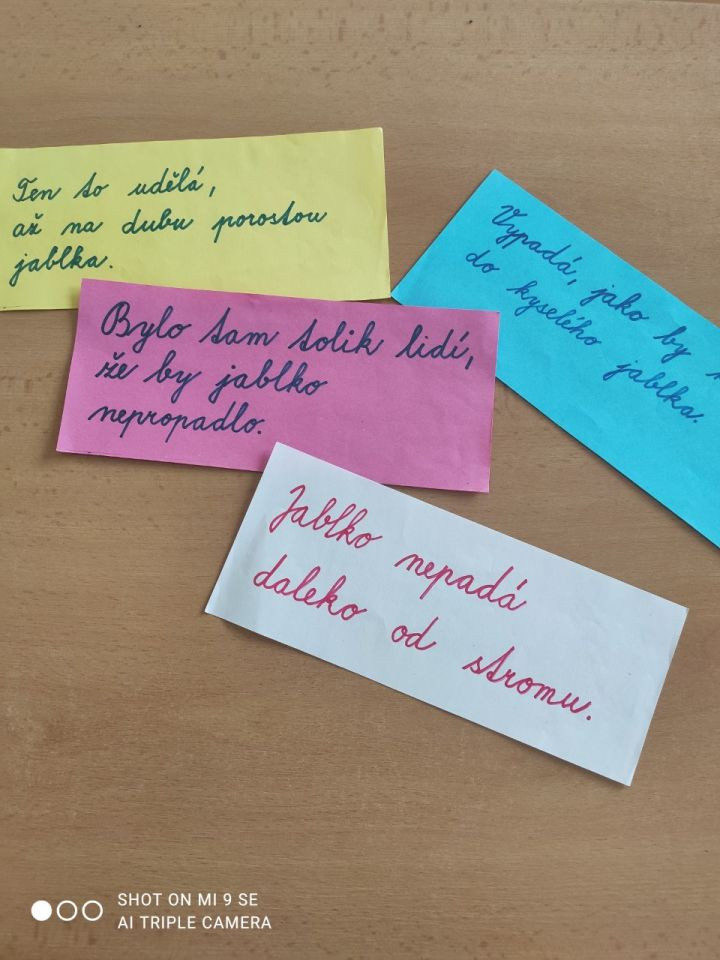 Ten to udělá,
až na dubu porostou
jablka.
Vypadá, jako by
do kyselého jablka.
Bylo tam tolik lidí,
že by jablko
nepropadlo.
Jablko nepadá
daleko od stromu.
SHOT ON MI 9 SE
AI TRIPLE CAMERA